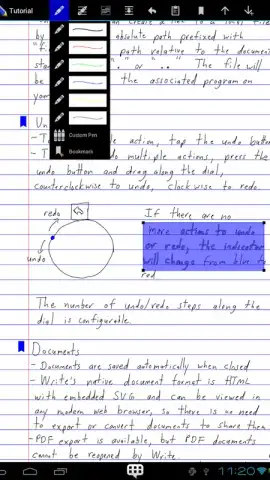 Tutorial
can create a link to a local file
by absolute path prefixed with
"fi path relative to the document
star "." or "..". The file will
be the associated program on
you
Custom Pen
Bookmark
Un
- To action, tap the undo button
- T do multiple actions, press the
undo button and drag along the dial,
counterclockwise to undo, clockwise to redo.
redo
undo
If there are no
more actions to undo
or redo, the indicator
will change from blue to
red
The number of undo/redo steps along the
dial is configurable.
Documents
- Documents are saved automatically when closed
- Write's native document format is HTML
with embedded SVG and can be viewed in
any modern web browser, so there is no need
to export or convert documents to share them
- PDF export is available, but PDF documents
cannot be reopened by Write.
11:20